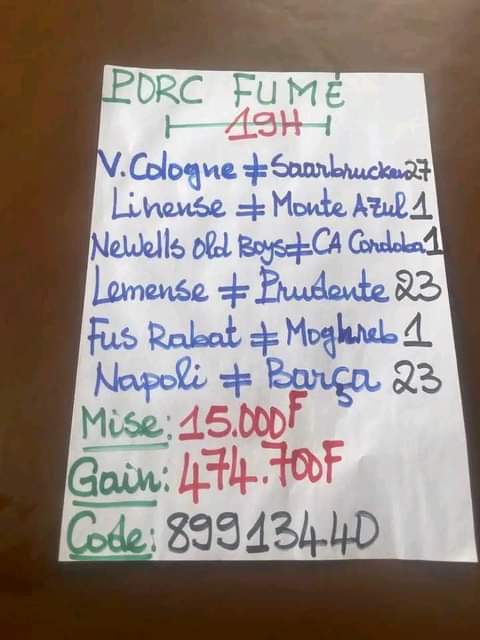 PORC FUMÉ
19H
V.Cologne ≠ Saarbrucken 27
Linense ≠ Monte Azul 1
Newells Old Boys ≠ CA Cordoba 1
Lemense ≠ Prudente 23
Fus Rabat ≠ Moghreb 1
Napoli ≠ Barça 23
Mise: 15.000F
Gain: 474.700F
Code: 89913440